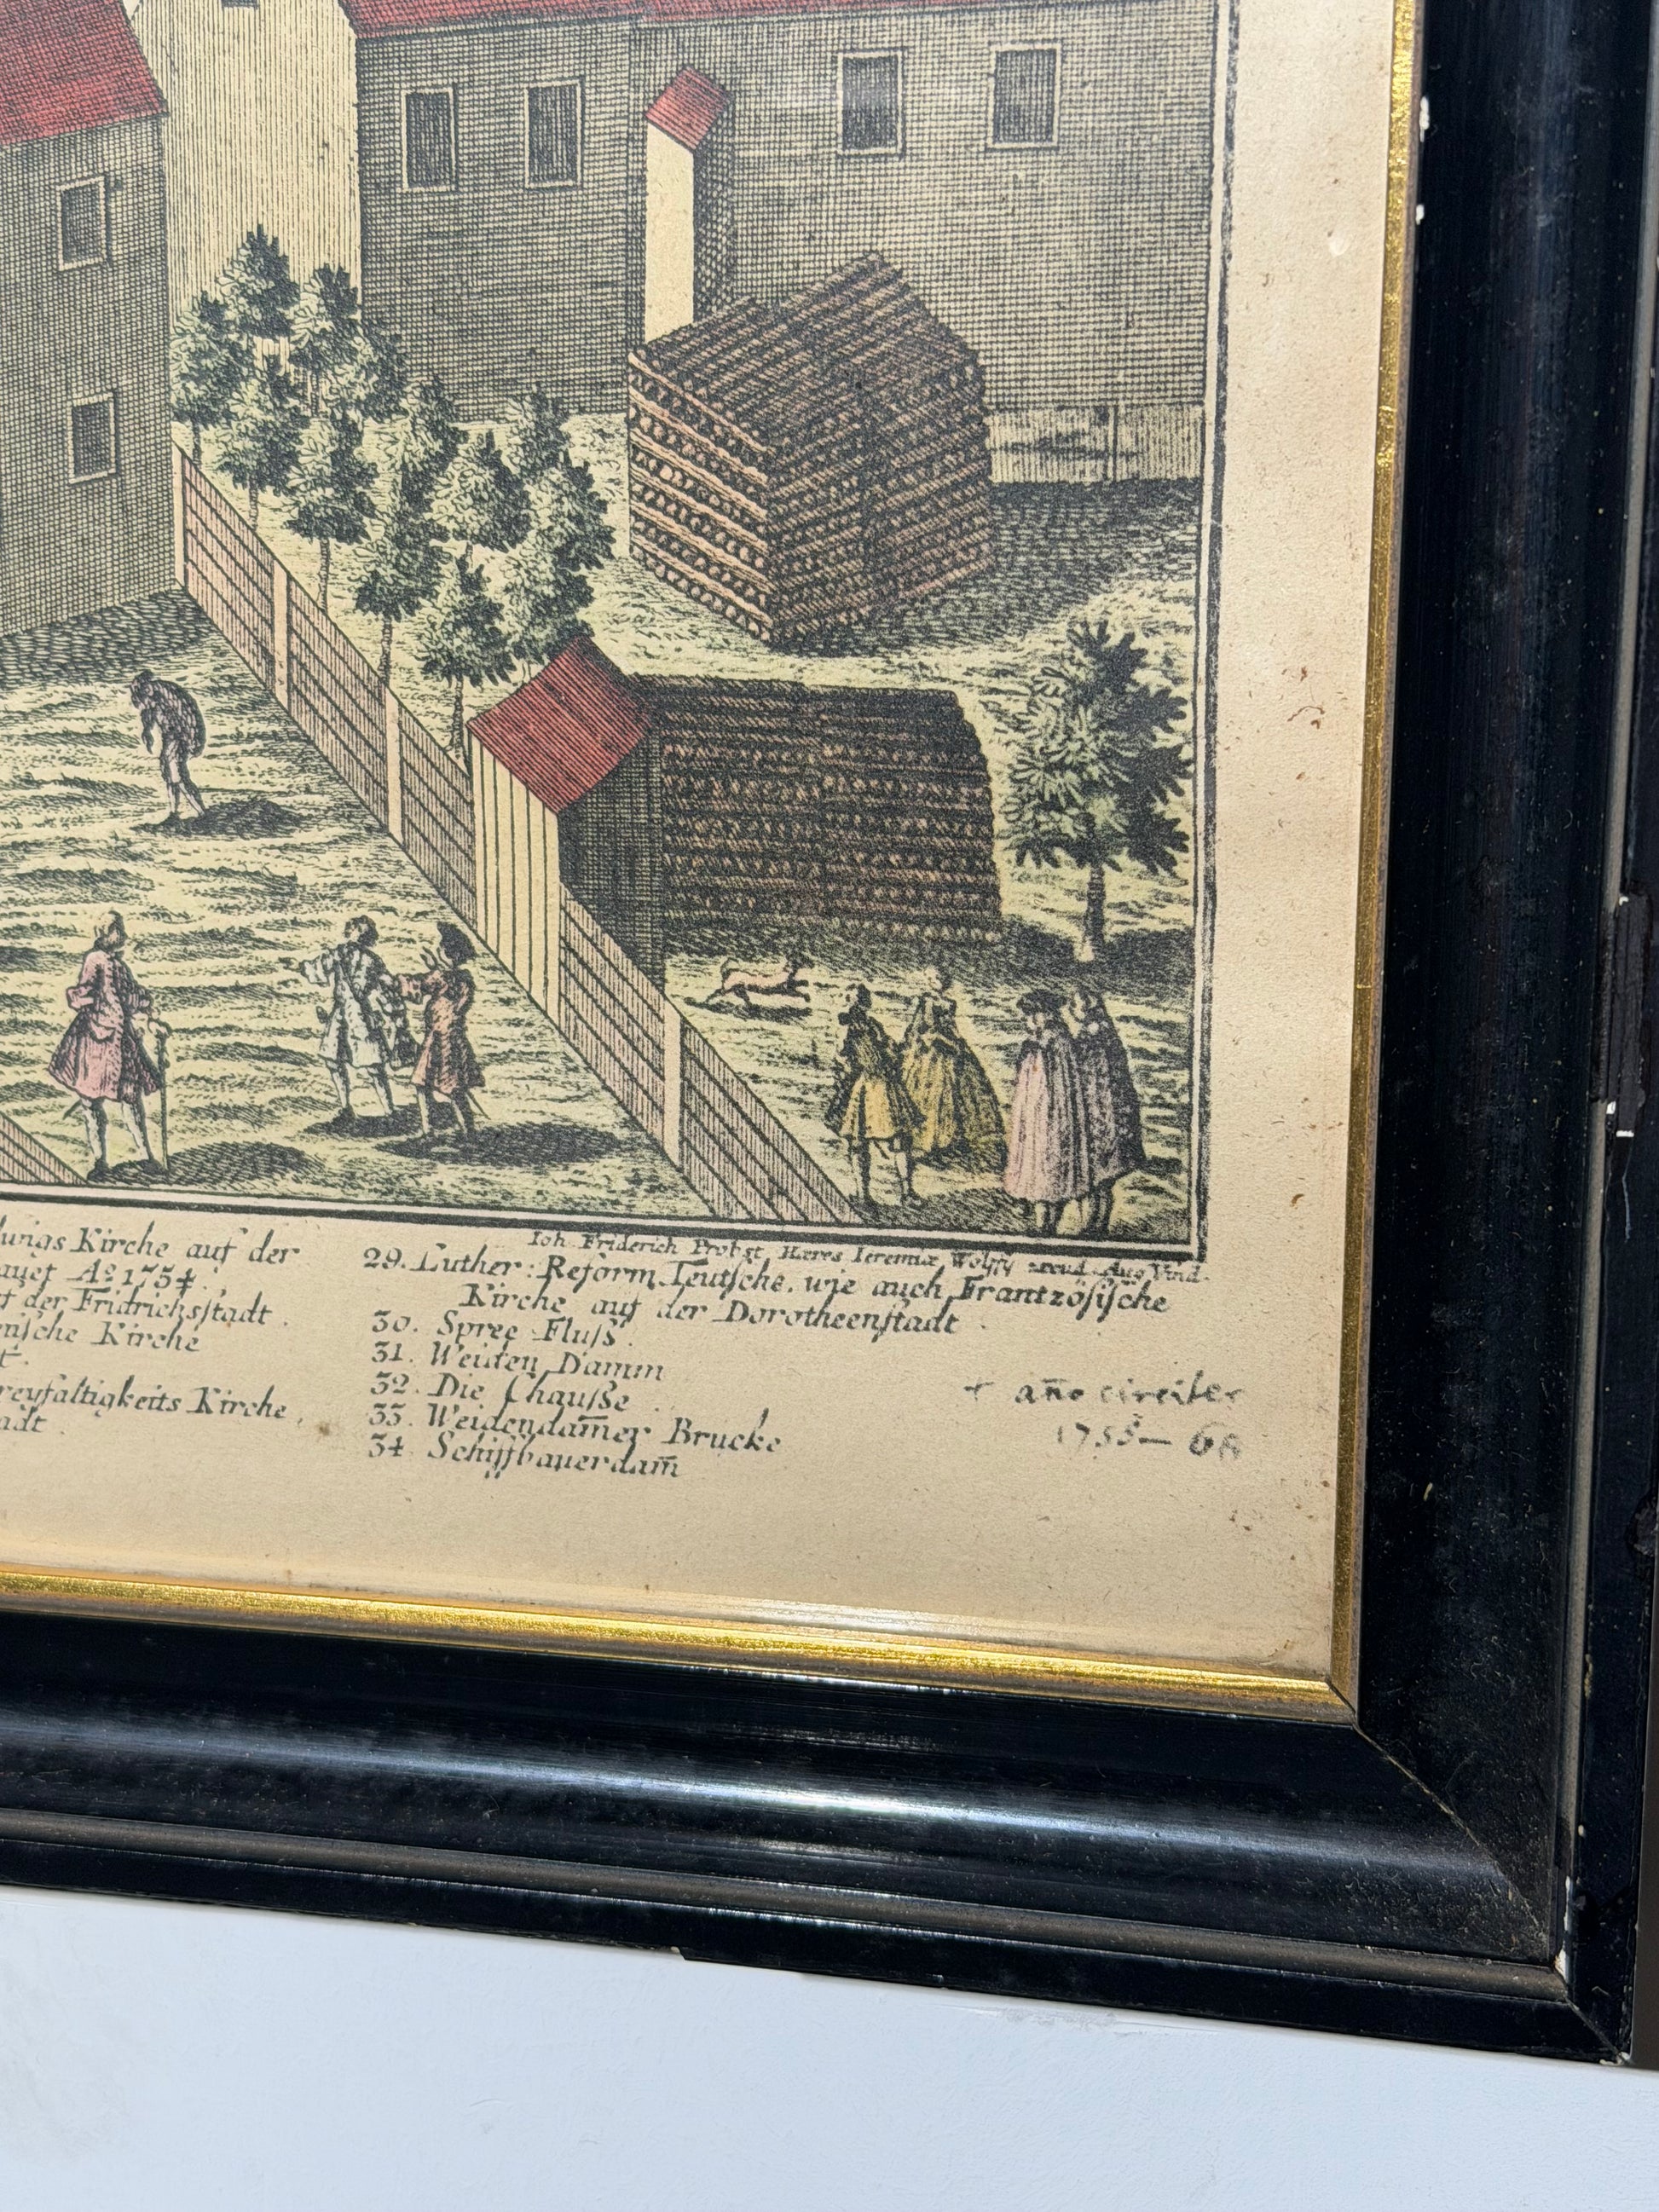 Kirche auf der
Aº 1754.
der Fridrichsstadt.
Kirche
Kirche,
Ioh. Friderich Probst, Hæres Ieremiæ Wolffy excud. Aug. Vind.
29. Luther: Reform. Teutsche, wie auch Frantzösische
Kirche auf der Dorotheenstadt.
30. Spree Fluß.
31. Weiden Dam̄
32. Die Chauße
33. Weidendam̄er Brucke
34 Schiffbauerdam̄
+ año circiter